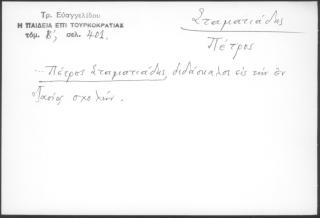 Τρ. Εὐαγγελίδου
Η ΠΑΙΔΕΙΑ ΕΠΙ ΤΟΥΡΚΟΚΡΑΤΙΑΣ
τόμ. Β', σελ. 401.
Σταματιάδης
Πέτρος
... Πέτρος Σταματιάδης, διδάσκαλος εἰς τὴν ἐν
Ἰασίῳ σχολήν.